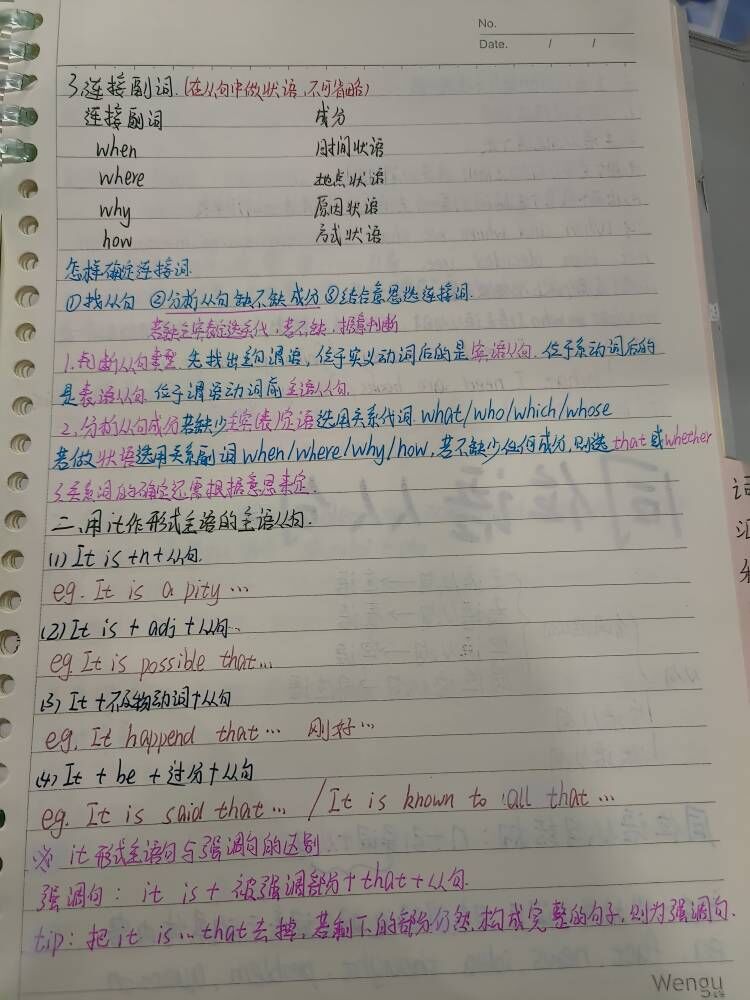 No.
Date. / /
3.连接副词.(在从句中做状语,不可省略)
连接副词 成分
when 时间状语
where 地点状语
why 原因状语
how 方式状语
怎样确定连接词.
①找从句 ②分析从句缺不缺成分 ③结合意思选连接词.
若缺主宾表定选系代,若不缺,据意判断
1.判断从句类型 先找出主句谓语,位于实义动词后的是宾语从句 位于系动词后的
是表语从句 位于谓语动词前主语从句.
2.分析从句成分 若缺少主宾(表)定语选用关系代词 what/who/which/whose
若做状语选用关系副词 when/where/why/how,若不缺少任何成分,则选 that 或 whether
3.关系词的确定还需根据意思来定.
二、用it作形式主语的主语从句.
(1) It is +n+从句.
eg. It is a pity …
(2) It is + adj +从句.
eg. It is possible that…
(3) It +不及物动词+从句
eg. It happend that… 刚好…
(4) It + be + 过分+从句
eg. It is said that… / It is known to all that …
※ it 形式主语句与强调句的区别
强调句: it is + 被强调部分+that+从句.
tip: 把it is … that去掉,若剩下的部分仍然构成完整的句子,则为强调句.
词
汇
Wengu